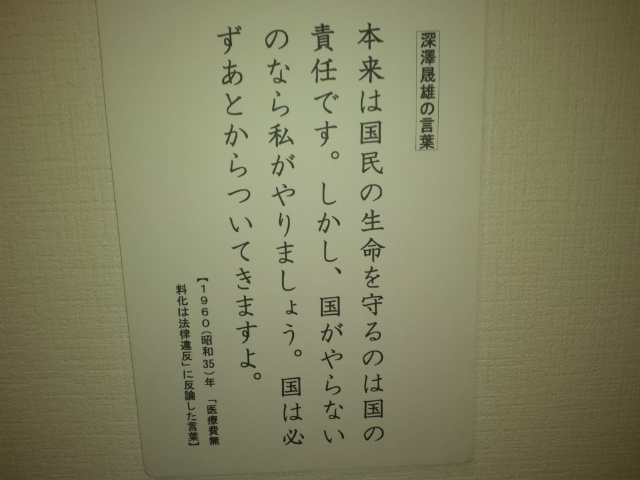 深澤晟雄の言葉
本来は国民の生命を守るのは国の
責任です。しかし、国がやらない
のなら私がやりましょう。国は必
ずあとからついてきますよ。
【1960(昭和35)年 「医療費無
料化は法律違反」に反論した言葉】